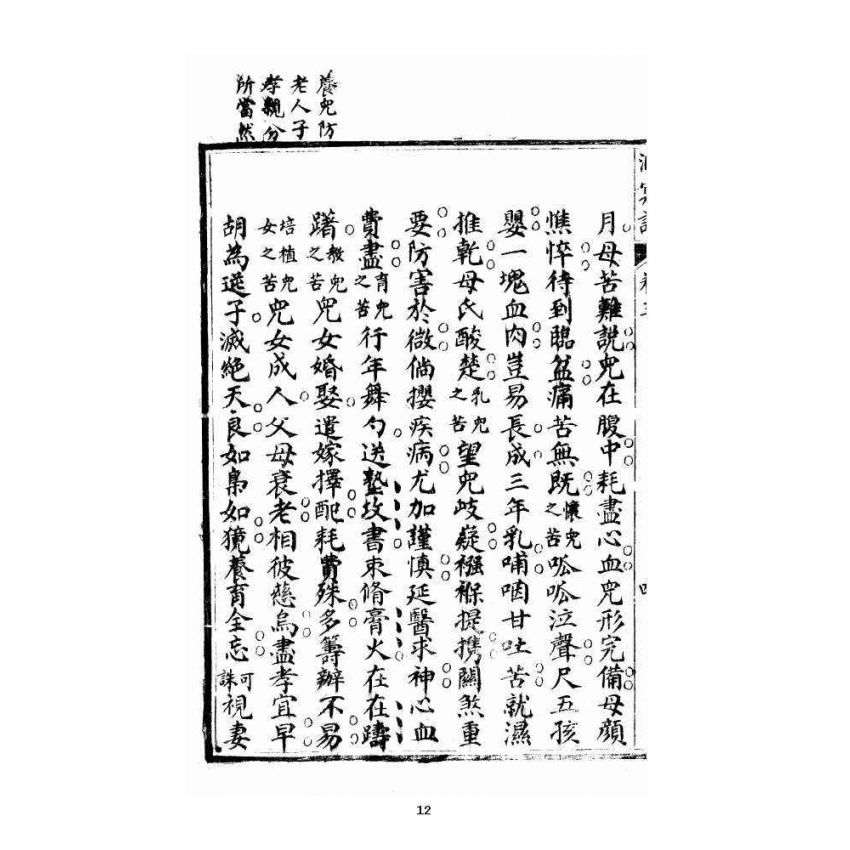 養兒防
老人子
孝親分
所當然
月母苦難說兒在腹中耗盡心血兒形完備母顏
憔悴待到臨盆痛苦無既懷兒之苦呱呱泣聲尺五孩
嬰一塊血肉豈易長成三年乳哺咽甘吐苦就濕
推乾母氏酸楚乳兒之苦望兒岐嶷襁褓提攜關煞重
要防害於微倘攖疾病尤加謹慎延醫求神心血
費盡育兒之苦行年舞勺送塾攻書束脩膏火在在躊
躇教兒之苦兒女婚娶遣嫁擇配耗費殊多籌辦不易
培植兒女之苦兒女成人父母衰老相彼慈烏盡孝宜早
胡為逆子滅絕天良如梟如獍養育全忘可誅視妻
12